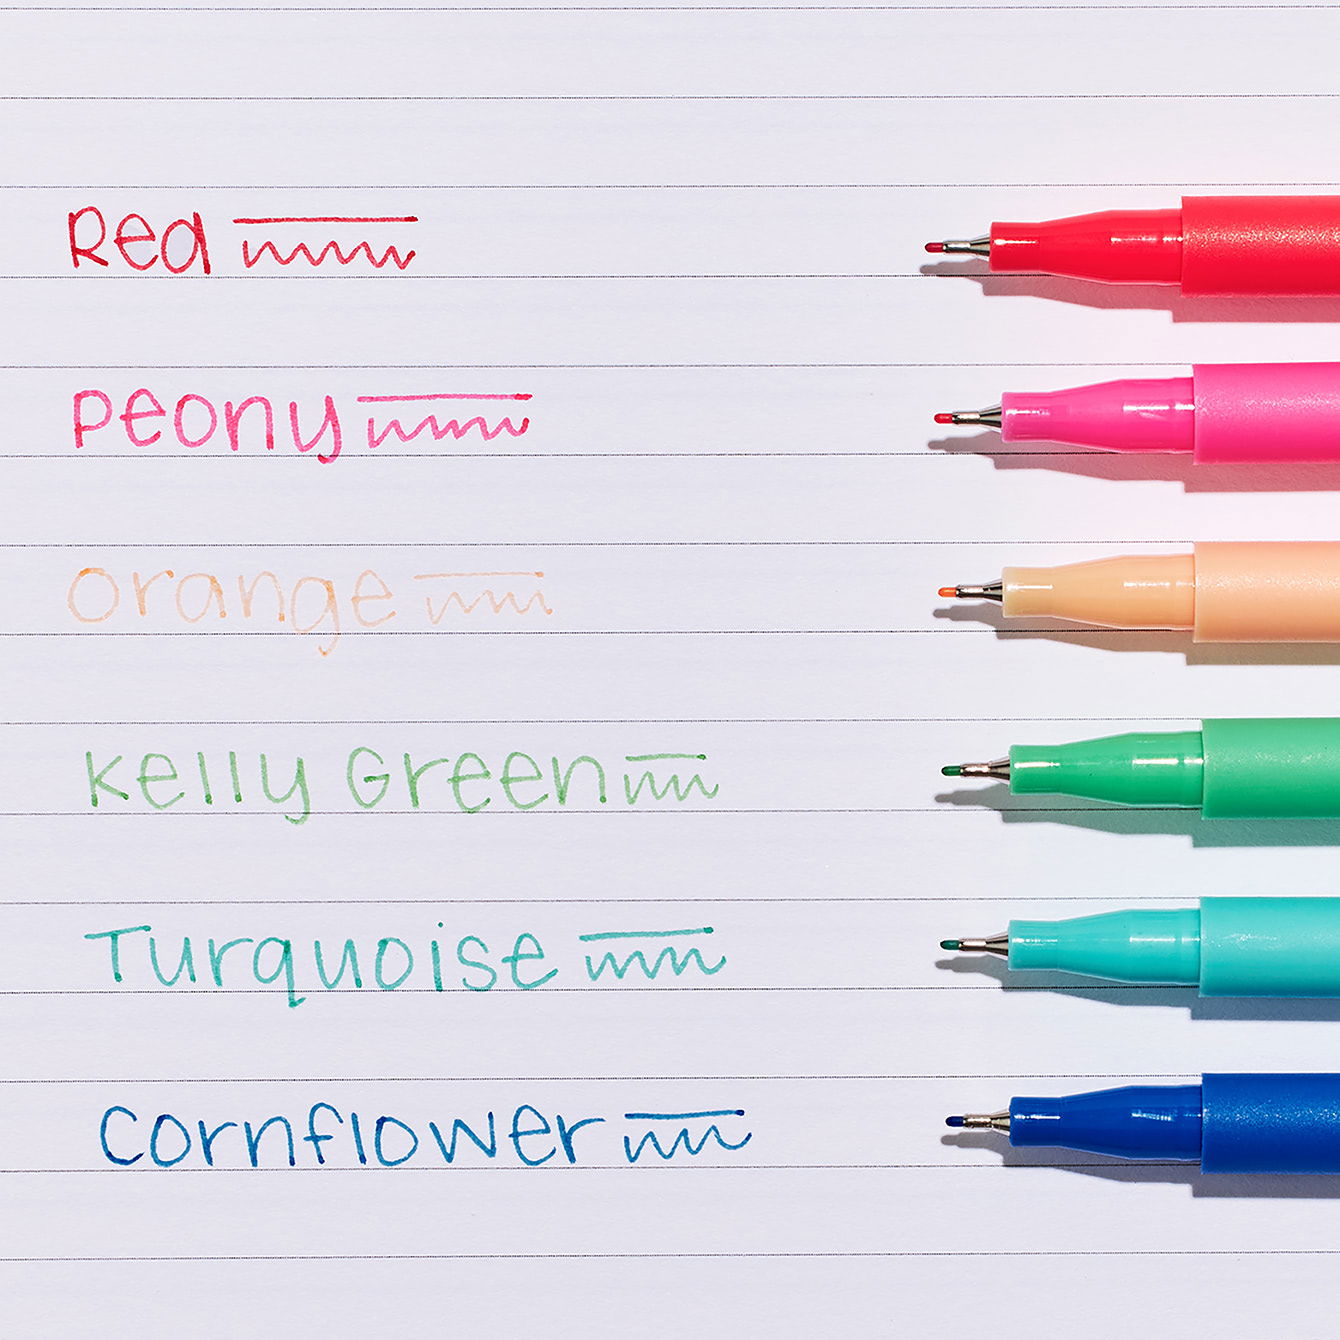 Red
Peony
Orange
Kelly Green
Turquoise
Cornflower